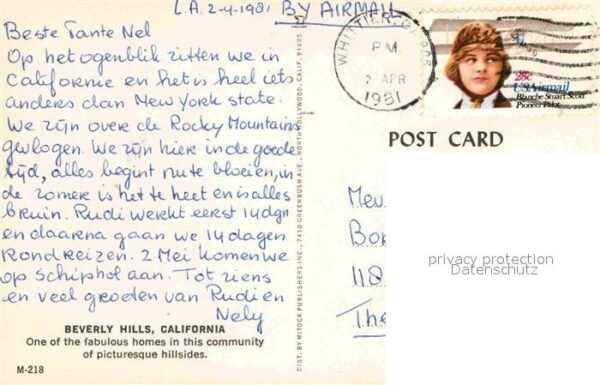 L.A. 2-4-1981 BY AIRMAIL
Beste Tante Nel
Op het ogenblik zitten we in
Californie en het is heel iets
anders dan New York state.
We zijn over de Rocky Mountains
gevlogen. We zijn hier in de goede
tijd, alles begint nu te bloeien, in
de zomer is het te heet en is alles
bruin. Rudi werkt eerst 14 dgn
en daarna gaan we 14 dagen
Rondreizen. 2 Mei komen we
op Schiphol aan. Tot ziens
en veel groeten van Rudi en
Nely
BEVERLY HILLS, CALIFORNIA
One of the fabulous homes in this community
of picturesque hillsides.
M-218
DIST. BY MITOCK PUBLISHERS INC., 7410 GREENBUSH AVE., NORTH HOLLYWOOD, CALIF. 91605
WHITTIER, CA
PM
2 APR
1981
28c
USAirmail
Blanche Stuart Scott
Pioneer Pilot
POST CARD
Mev
Bor
118
The
privacy protection
Datenschutz